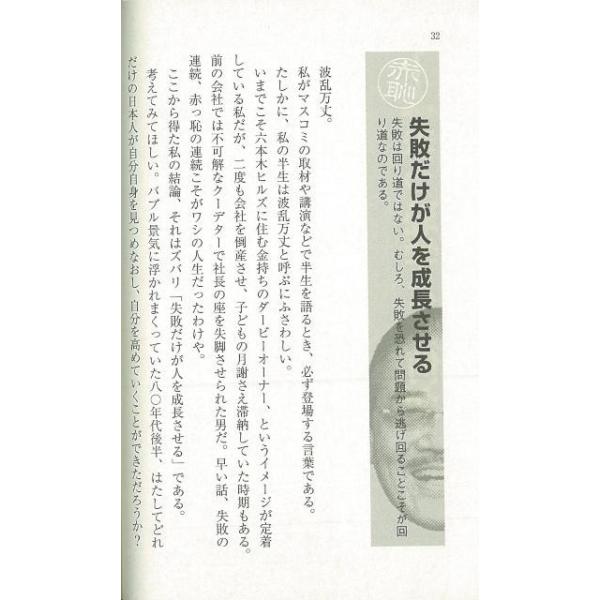 32
赤恥
失敗だけが人を成長させる
失敗は回り道ではない。むしろ、失敗を恐れて問題から逃げ回ることこそが回
り道なのである。
波乱万丈。
私がマスコミの取材や講演などで半生を語るとき、必ず登場する言葉である。
たしかに、私の半生は波乱万丈と呼ぶにふさわしい。
いまでこそ六本木ヒルズに住む金持ちのダービーオーナー、というイメージが定着
している私だが、二度も会社を倒産させ、子どもの月謝さえ滞納していた時期もある。
前の会社では不可解なクーデターで社長の座を失脚させられた男だ。早い話、失敗の
連続、赤っ恥の連続こそがワシの人生だったわけや。
ここから得た私の結論、それはズバリ「失敗だけが人を成長させる」である。
考えてみてほしい。バブル景気に浮かれまくっていた八〇年代後半、はたしてどれ
だけの日本人が自分自身を見つめなおし、自分を高めていくことができただろうか？